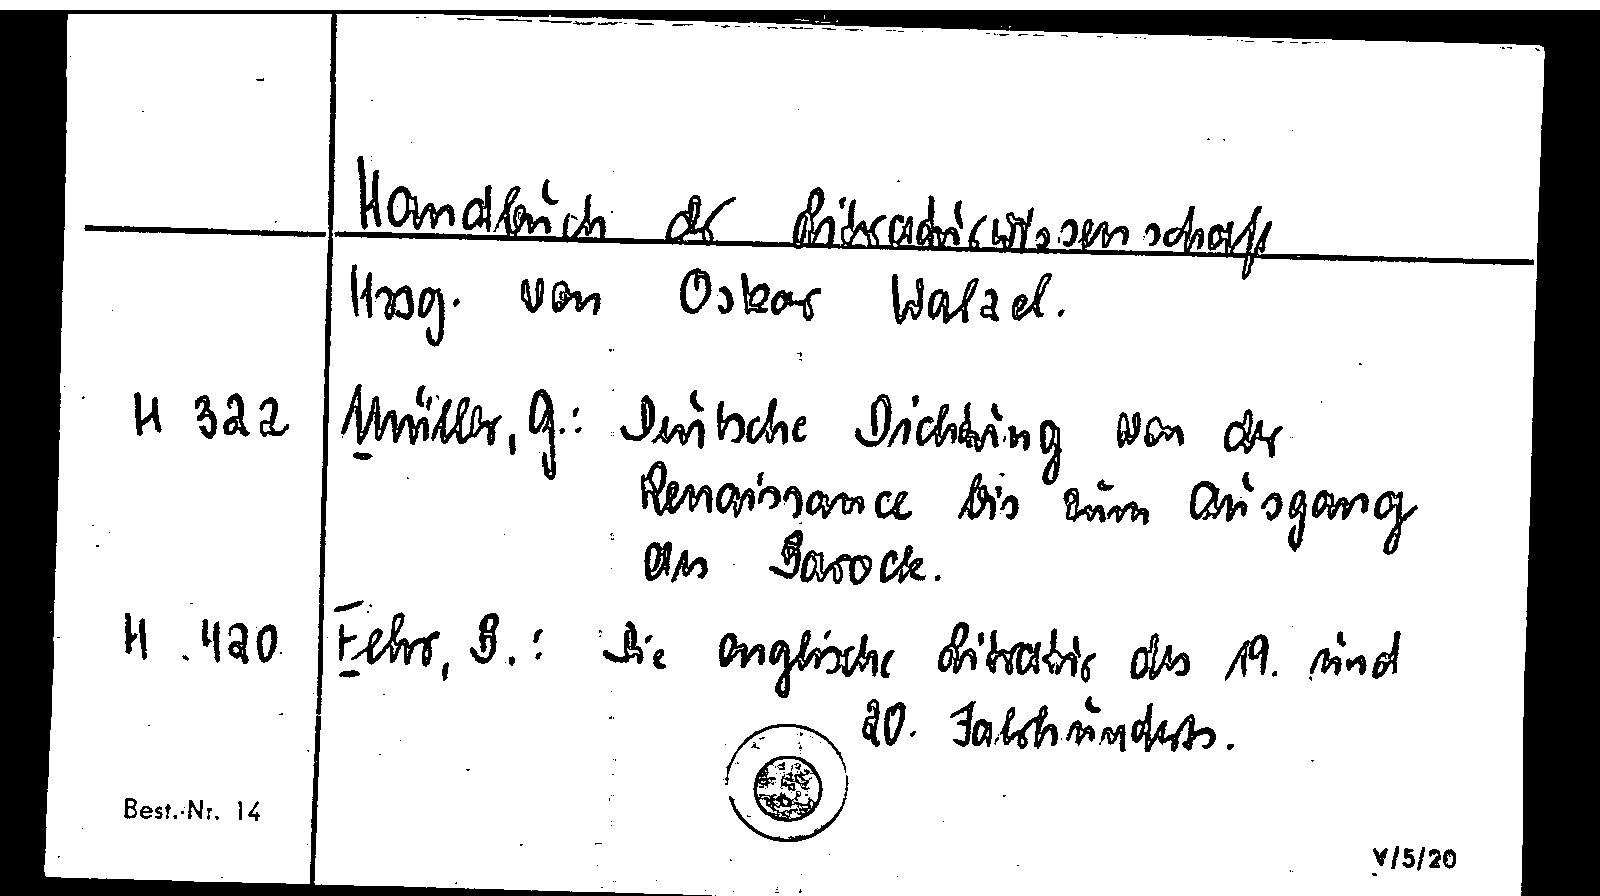 Handbuch der Literaturwissenschaft
Hrsg. von Oskar Walzel.
H 322 Müller, G.: Deutsche Dichtung von der
Renaissance bis zum Ausgang
des Barock.
H 420 Fehr, B.: Die englische Literatur des 19. und
20. Jahrhunderts.
Best.-Nr. 14
V/5/20